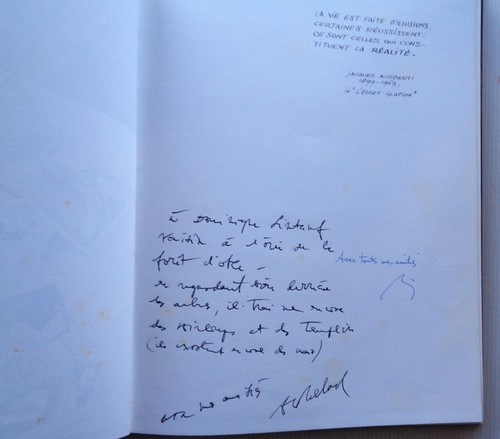 LA VIE EST FAITE D'ILLUSIONS.
CERTAINES RÉUSSISSENT:
CE SONT CELLES QUI CONS-
TITUENT LA RÉALITÉ.
JACQUES AUDIBERTI
1899-1965.
IN "L'EFFET GLAPION"
à Dominique
voisin à l'orée de la
forêt d'othe -
en regardant bien derrière
les arbres, il trouve encore
des et des Templiers
(ils existent encore des
avec mon amitié
Avec toutes mes amitiés